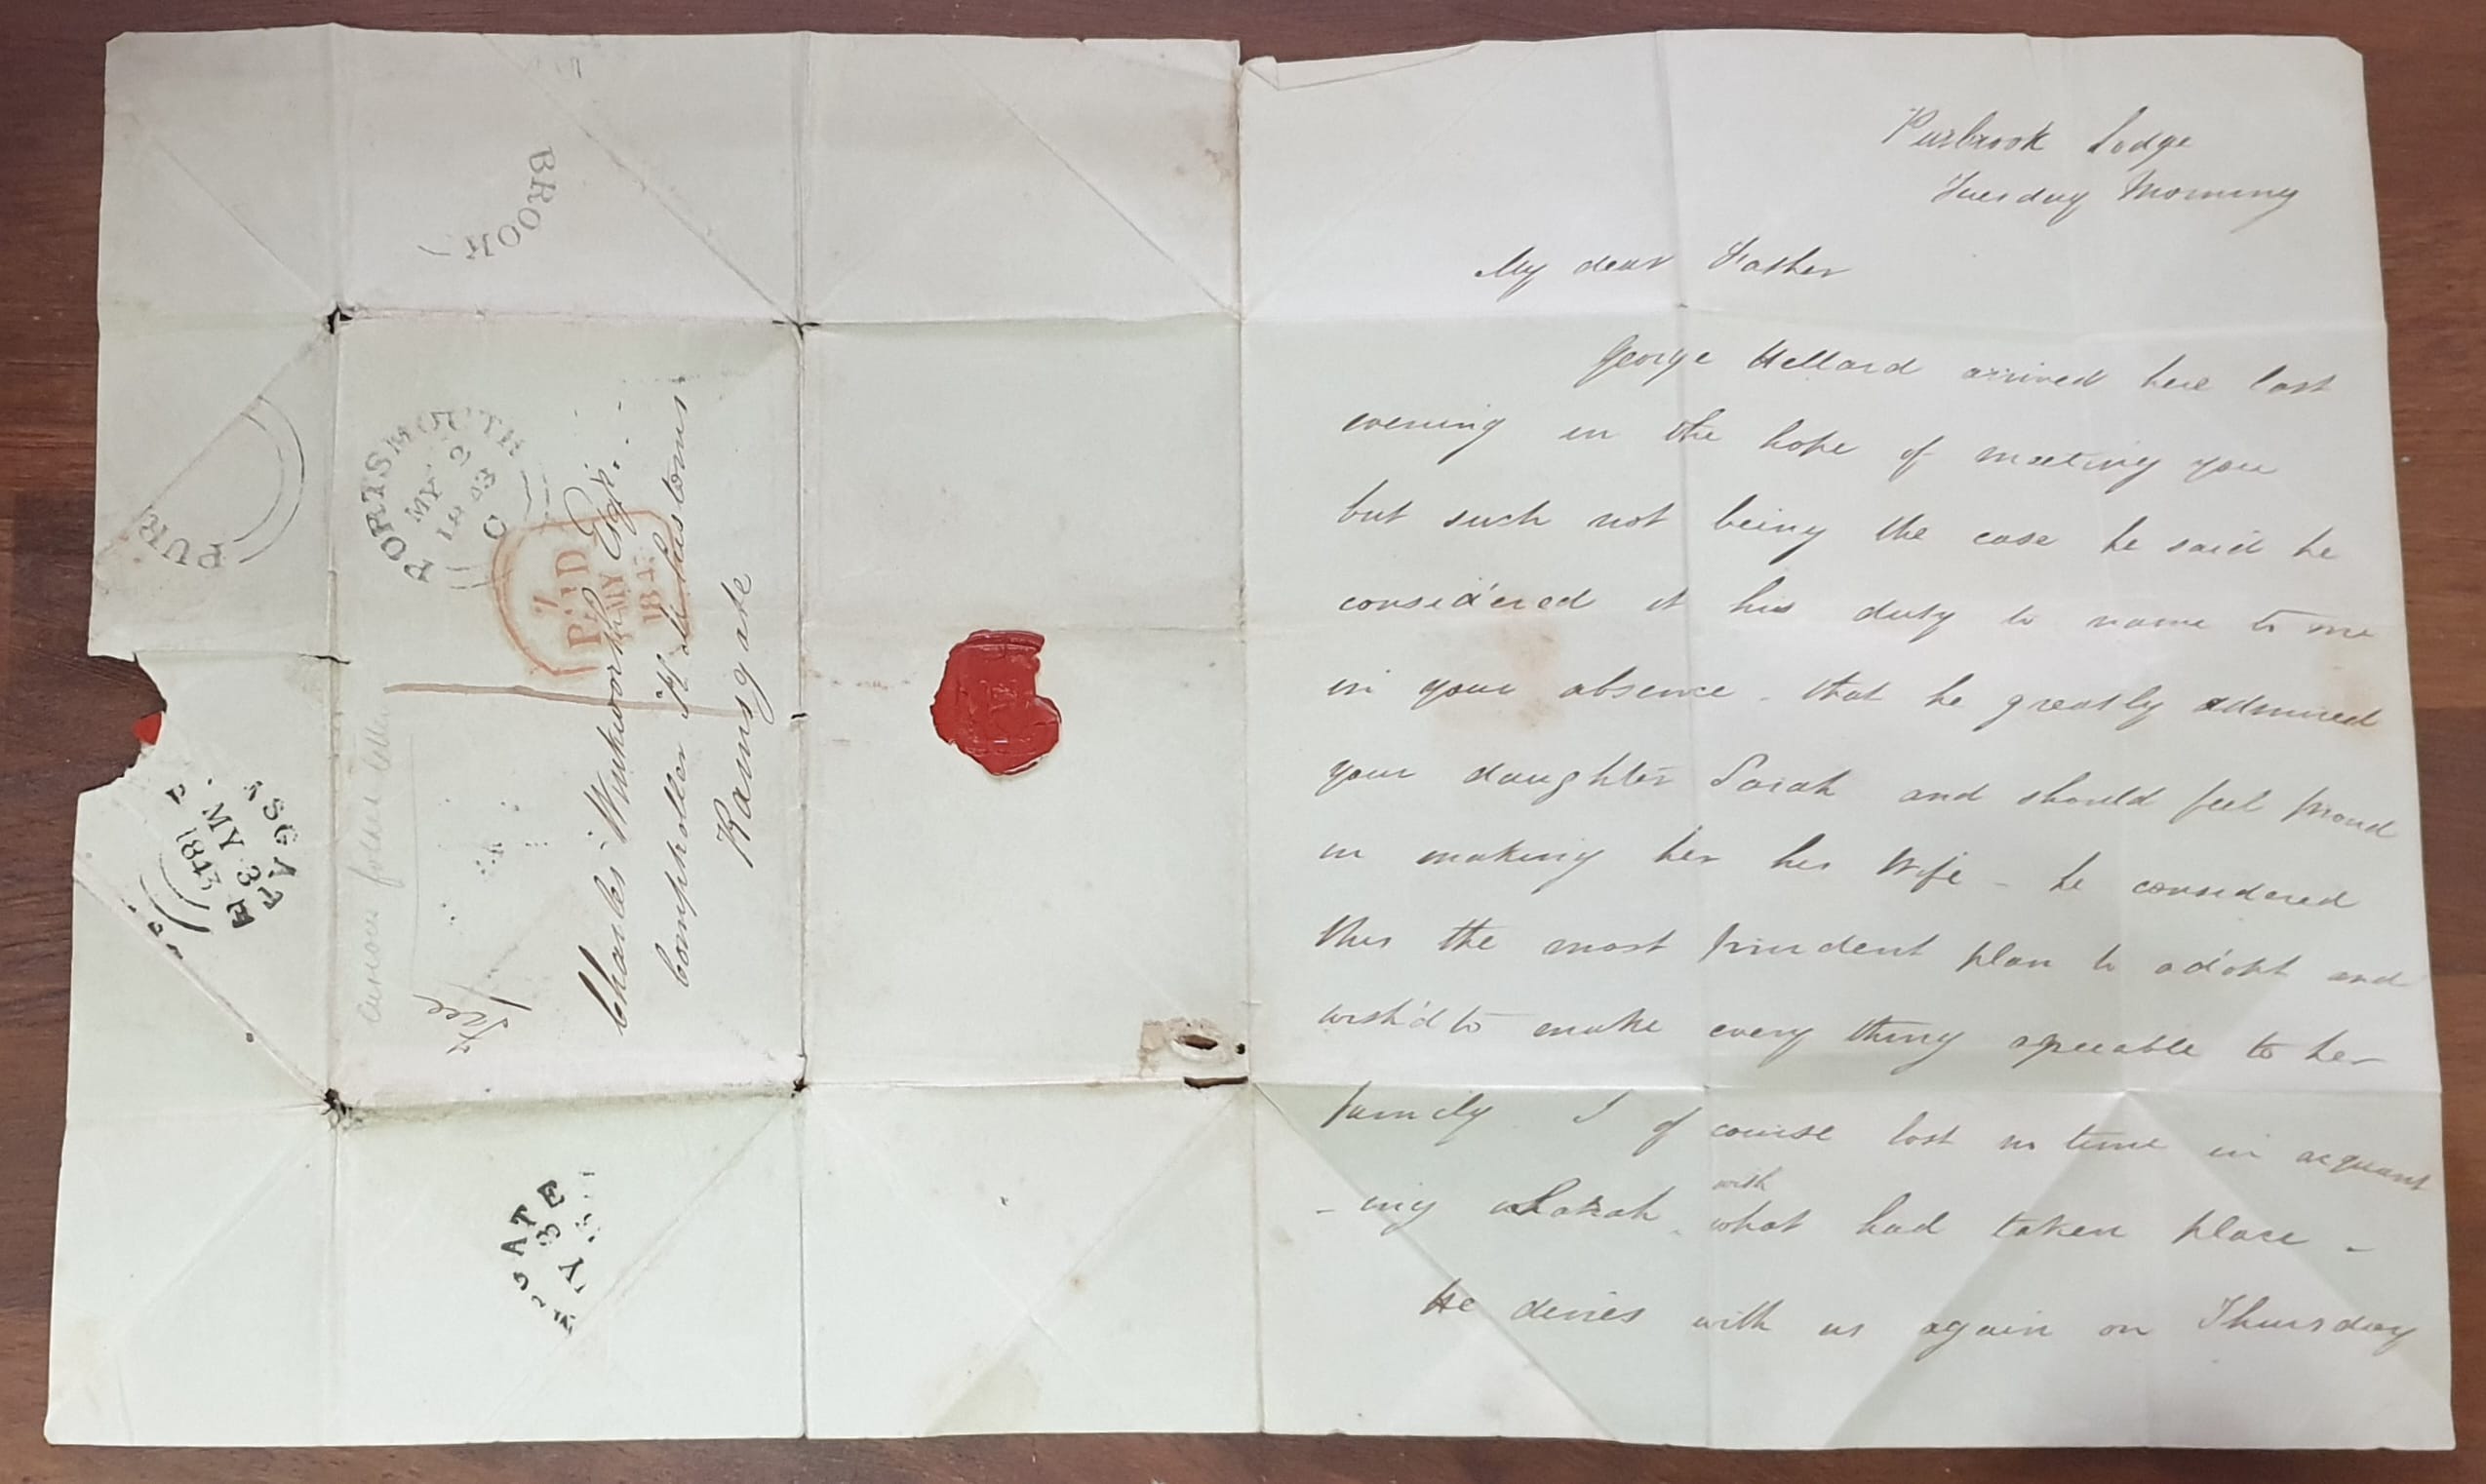 BROOK
PUR
PORTSMOUTH
MY 2
1843
C
7
PAID
MY
1843
Charles Warkworth Esqr.
Comptroller H M Customs
Ramsgate
Free
MY 3
1843
GATE
MY 3
Purbrook Lodge
Tuesday Morning
My dear Father
George Hellard arrived here last
evening in the hope of meeting you
but such not being the case he said he
considered it his duty to name to me
in your absence - that he greatly admired
your daughter Sarah and should feel proud
in making her his Wife - he considered
this the most prudent plan to adopt and
wish'd to make every thing agreeable to her
family I of course lost no time in acquaint
- ing Sarah with what had taken place -
He dines with us again on Thursday